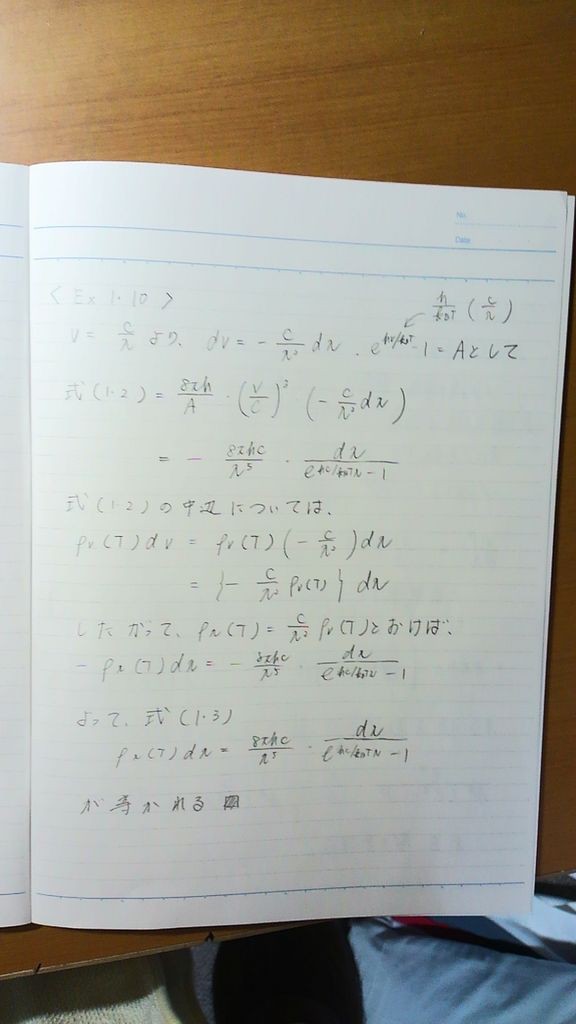 No.
Date
< Ex 1・10 >
h/k_BT (c/λ)
ν = c/λ より、 dν = - c/λ² dλ . e^{hν/k_BT} - 1 = A として
式(1・2) = 8πh/A ・ (ν/c)³ (- c/λ² dλ)
= - 8πhc/λ⁵ ・ dλ/(e^{hc/k_BTλ} - 1)
式(1・2)の中辺については、
ρν(T)dν = ρν(T)(- c/λ²)dλ
= {- c/λ² ρν(T)} dλ
したがって、ρλ(T) = c/λ² ρν(T)とおけば、
- ρλ(T)dλ = - 8πhc/λ⁵ ・ dλ/(e^{hc/k_BTλ} - 1)
よって、式(1・3)
ρλ(T)dλ = 8πhc/λ⁵ ・ dλ/(e^{hc/k_BTλ} - 1)
が導かれる